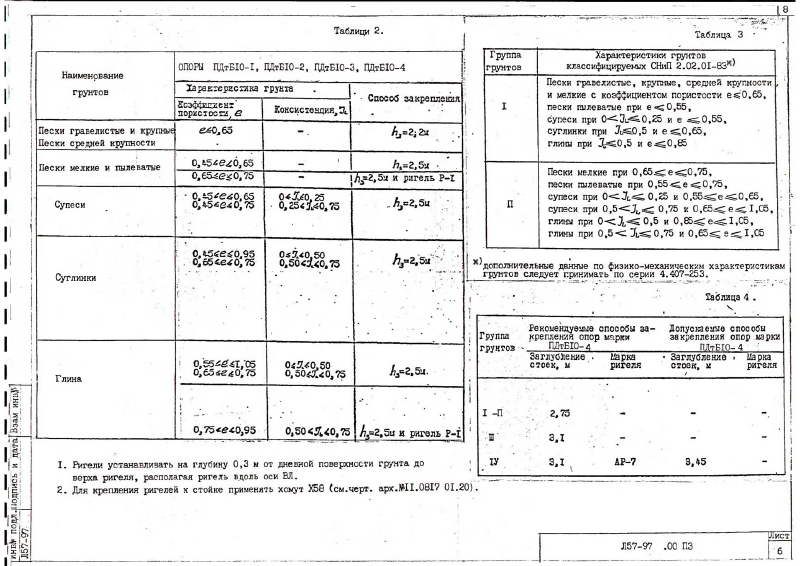 8
Таблици 2.
Наименование
грунтов
ОПОРЫ ПДтБ10-1, ПДтБ10-2, ПДтБ10-3, ПДтБ10-4
Характеристика грунта
Способ закрепления
Коэффициент
пористости, e
Консистенция, JL
Пески гравелистые и крупные
Пески средней крупности
e≤0,65
–
h₃=2; 2м
Пески мелкие и пылеватые
0,45<e≤0,65
–
h₃=2,5м
0,65<e≤0,75
–
h₃=2,5м и ригель Р-I
Супеси
0,45<e≤0,65
0,45<e≤0,75
0≤JL≤0,25
0,25<JL≤0,75
h₃=2,5м
Суглинки
0,45≤e≤0,95
0,65≤e≤0,75
0≤JL≤0,50
0,50<JL≤0,75
h₃=2,5м
Глина
0,55≤e≤1,05
0,65≤e≤0,75
0≤JL≤0,50
0,50<JL≤0,75
h₃=2,5м.
0,75<e≤0,95
0,50<JL≤0,75
h₃=2,5м и ригель Р-I
1. Ригели устанавливать на глубину 0,3 м от дневной поверхности грунта до
верха ригеля, располагая ригель вдоль оси ВЛ.
2. Для крепления ригелей к стойке применять хомут Х58 (см.черт. арх.№11.0817 01.20).
Таблица 3
Группа
грунтов
Характеристики грунтов
классифицируемых СНиП 2.02.01-83ж)
I
Пески гравелистые, крупные, средней крупности
и мелкие с коэффициентом пористости e≤0,65,
пески пылеватые при e≤0,55,
супеси при 0<JL≤0,25 и e≤0,55,
суглинки при JL≤0,5 и e≤0,65,
глины при JL≤0,5 и e≤0,85
П
Пески мелкие при 0,65≤e≤0,75,
пески пылеватые при 0,55≤e≤0,75,
супеси при 0<JL≤0,25 и 0,55≤e≤0,65,
супеси при 0,5<JL≤0,75 и 0,65≤e≤1,05,
глины при 0<JL≤0,5 и 0,85≤e≤1,05,
глины при 0,5<JL≤0,75 и 0,65≤e≤1,05
ж)дополнительные данные по физико-механическим характеристикам
грунтов следует принимать по серии 4.407-253.
Таблица 4.
Группа
грунтов
Рекомендуемые способы за-
крепления опор марки
ПДтБ10-4
Допускаемые способы
закрепления опор марки
ПДтБ10-4
Заглубление
стоек, м
Марка
ригеля
Заглубление
стоек, м
Марка
ригеля
I -П
2,75
–
–
–
Ш
3,1
–
–
–
IУ
3,1
АР-7
3,45
–
Взам инв№
Подпись и дата
Инв№ подл.
Л57-97
Л57-97 .00 ПЗ
Лист
6